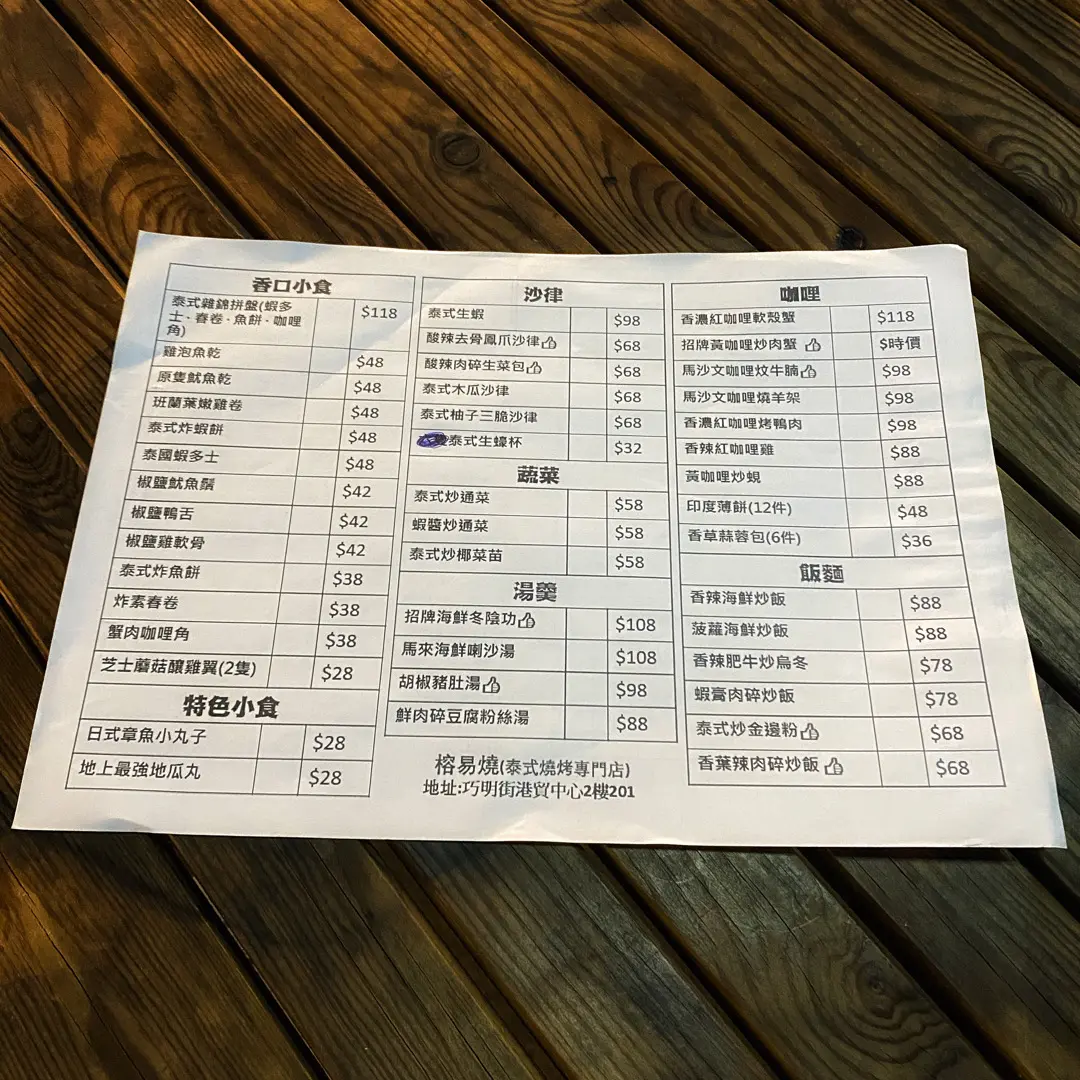 香口小食
泰式雜錦拼盤(蝦多
士‧春卷‧魚餅‧咖哩
角) $118
雞泡魚乾 $48
原隻魷魚乾 $48
班蘭葉嫩雞卷 $48
泰式炸蝦餅 $48
泰國蝦多士 $48
椒鹽魷魚鬚 $42
椒鹽鴨舌 $42
椒鹽雞軟骨 $42
泰式炸魚餅 $38
炸素春卷 $38
蟹肉咖哩角 $38
芝士蘑菇釀雞翼(2隻) $28
特色小食
日式章魚小丸子 $28
地上最強地瓜丸 $28
沙律
泰式生蝦 $98
酸辣去骨鳳爪沙律 $68
酸辣肉碎生菜包 $68
泰式木瓜沙律 $68
泰式柚子三脆沙律 $68
泰式生蠔杯 $32
蔬菜
泰式炒通菜 $58
蝦醬炒通菜 $58
泰式炒椰菜苗 $58
湯羹
招牌海鮮冬陰功 $108
馬來海鮮喇沙湯 $108
胡椒豬肚湯 $98
鮮肉碎豆腐粉絲湯 $88
榕易燒(泰式燒烤專門店)
地址:巧明街港貿中心2樓201
咖哩
香濃紅咖哩軟殼蟹 $118
招牌黃咖哩炒肉蟹 $時價
馬沙文咖哩炆牛腩 $98
馬沙文咖哩燒羊架 $98
香濃紅咖哩烤鴨肉 $98
香辣紅咖哩雞 $88
黃咖哩炒蜆 $88
印度薄餅(12件) $48
香草蒜蓉包(6件) $36
飯麵
香辣海鮮炒飯 $88
菠蘿海鮮炒飯 $88
香辣肥牛炒烏冬 $78
蝦膏肉碎炒飯 $78
泰式炒金邊粉 $68
香葉辣肉碎炒飯 $68